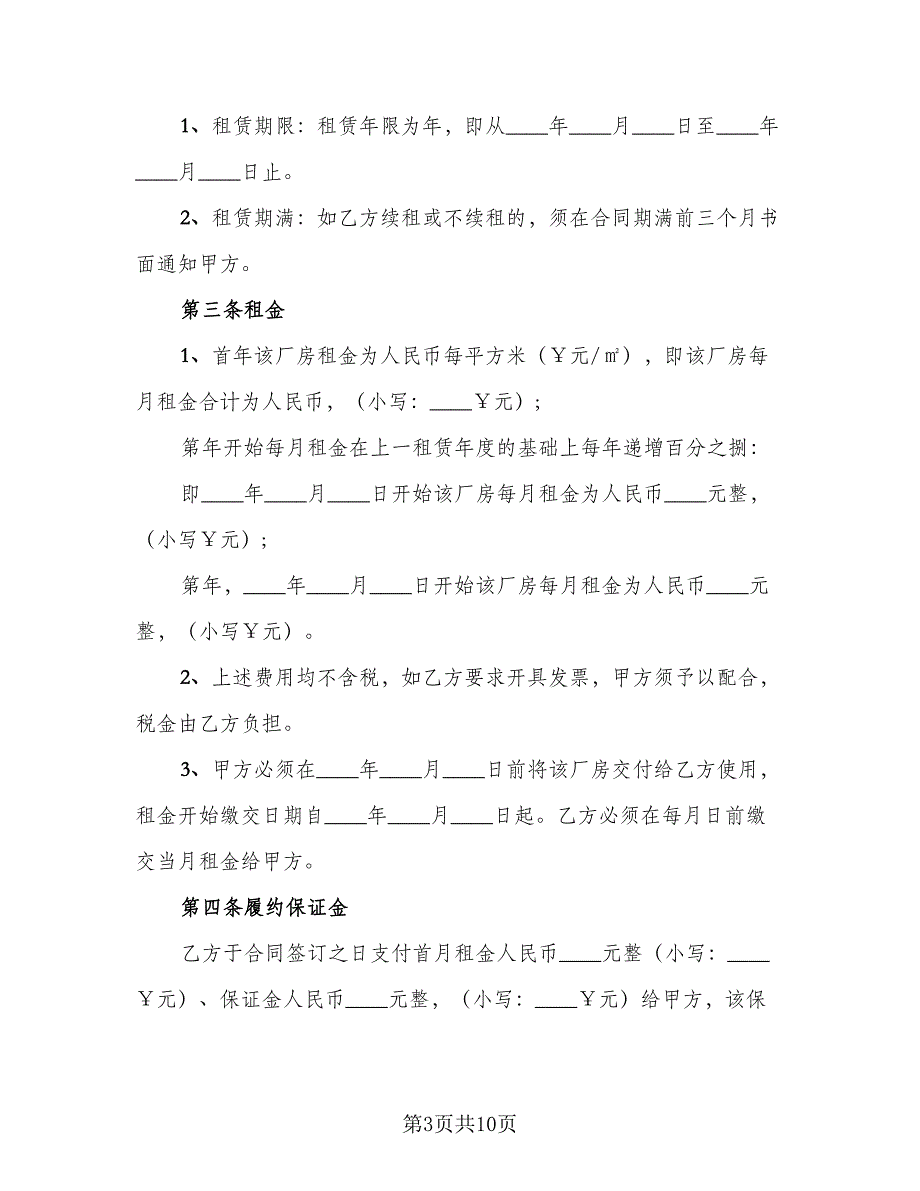 1、租赁期限：租赁年限为年，即从____年____月____日至____年
____月____日止。
2、租赁期满：如乙方续租或不续租的，须在合同期满前三个月书
面通知甲方。
第三条租金
1、首年该厂房租金为人民币每平方米（￥元/㎡），即该厂房每
月租金合计为人民币，（小写：____￥元）；
第年开始每月租金在上一租赁年度的基础上每年递增百分之捌：
即____年____月____日开始该厂房每月租金为人民币____元整，
（小写￥元）；
第年，____年____月____日开始该厂房每月租金为人民币____元
整，（小写￥元）。
2、上述费用均不含税，如乙方要求开具发票，甲方须予以配合，
税金由乙方负担。
3、甲方必须在____年____月____日前将该厂房交付给乙方使用，
租金开始缴交日期自____年____月____日起。乙方必须在每月日前缴
交当月租金给甲方。
第四条履约保证金
乙方于合同签订之日支付首月租金人民币____元整（小写：____
￥元）、保证金人民币____元整，（小写：____￥元）给甲方，该保
第3页共10页